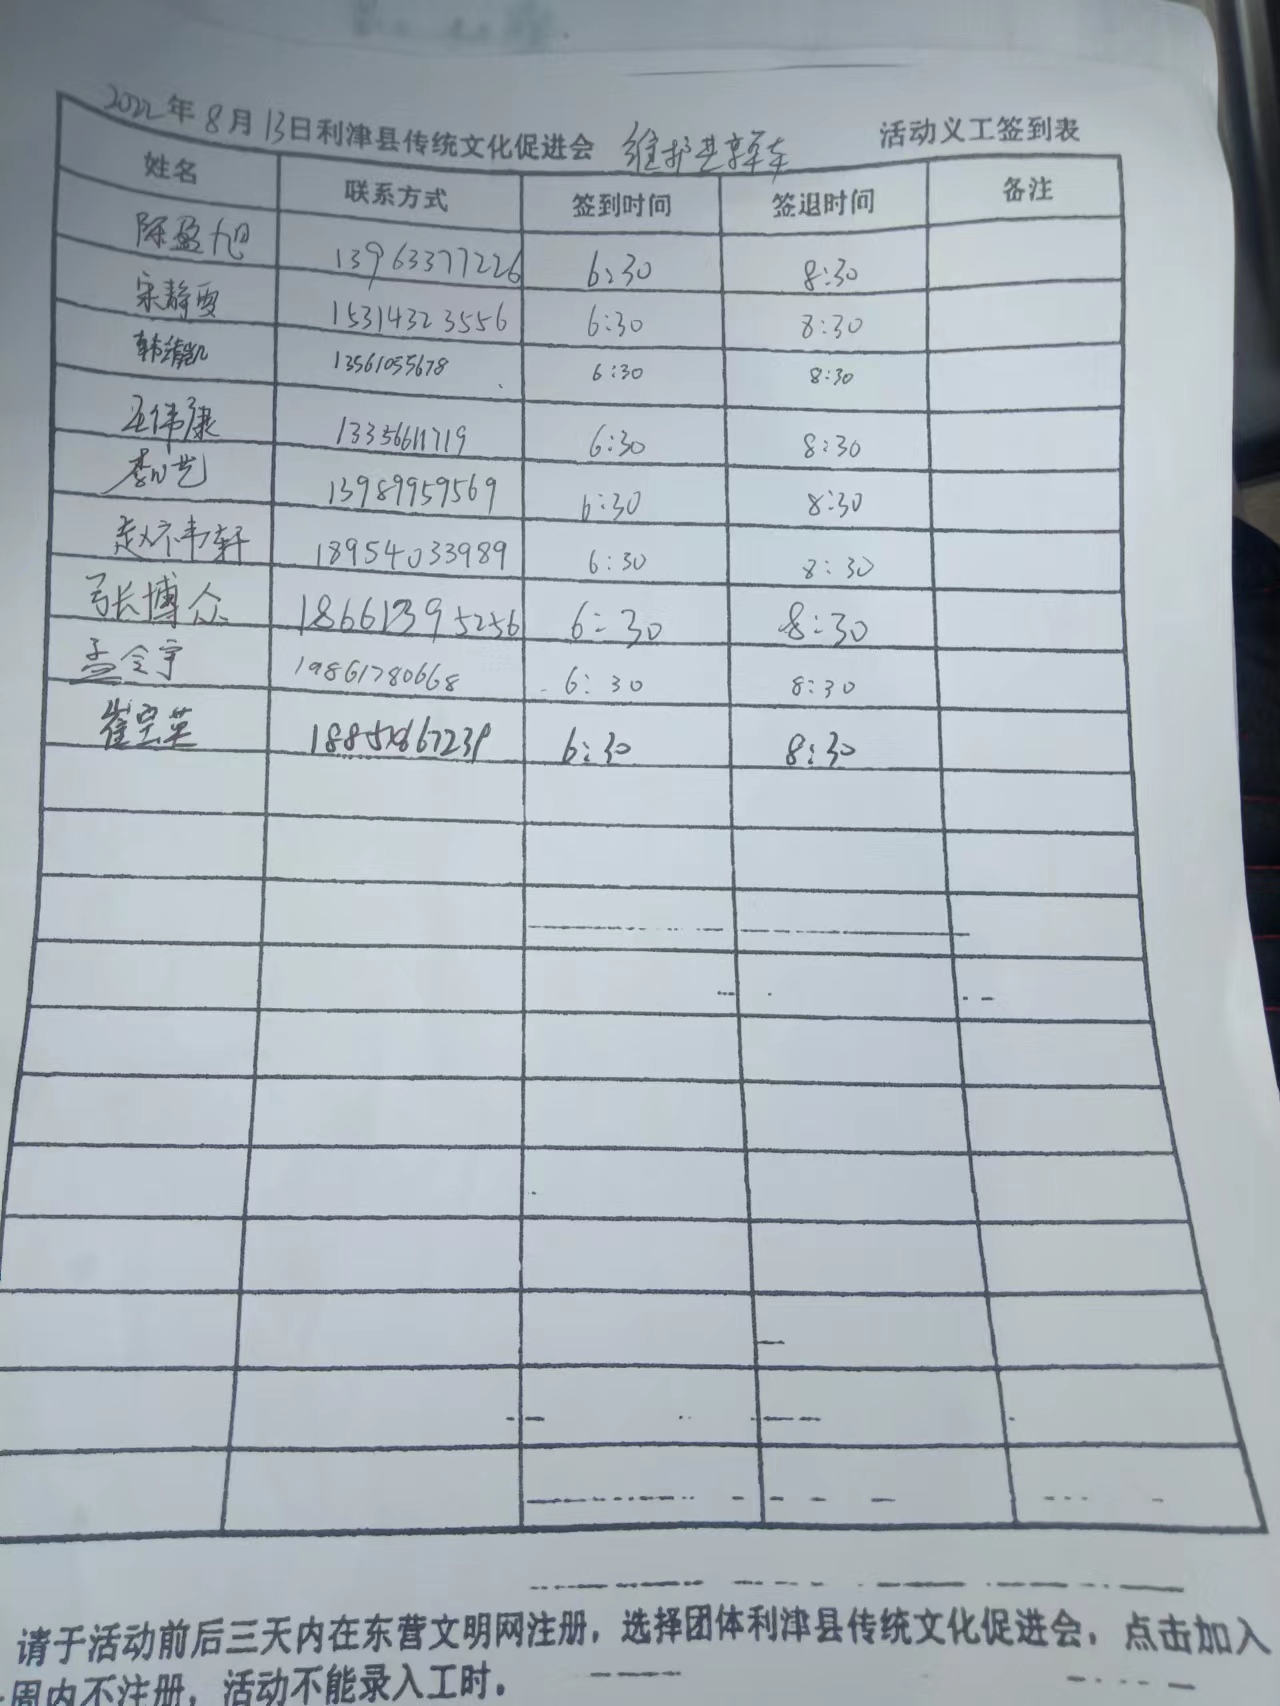 2022年8月13日利津县传统文化促进会 维护共享单车 活动义工签到表
姓名 联系方式 签到时间 签退时间 备注
陈盈旭 13963377226 6:30 8:30
宋静雯 15314323556 6:30 8:30
韩靖凯 13561055678 6:30 8:30
王伟康 13356611719 6:30 8:30
李心艺 13989959569 6:30 8:30
赵祎轩 18954033989 6:30 8:30
张博众 18661395256 6:30 8:30
孟令宇 19861780668 6:30 8:30
崔宝英 6:30 8:30
请于活动前后三天内在东营文明网注册，选择团体利津县传统文化促进会，点击加入
周内不注册，活动不能录入工时。